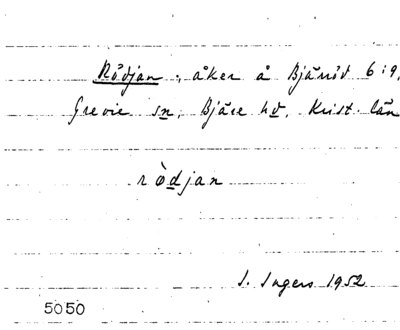 Rödjan, åker å Bjäröd 6:9,
Grevie sn, Bjäre hd, Krist. län
rö̀djan
I. Ingers 1952
5050